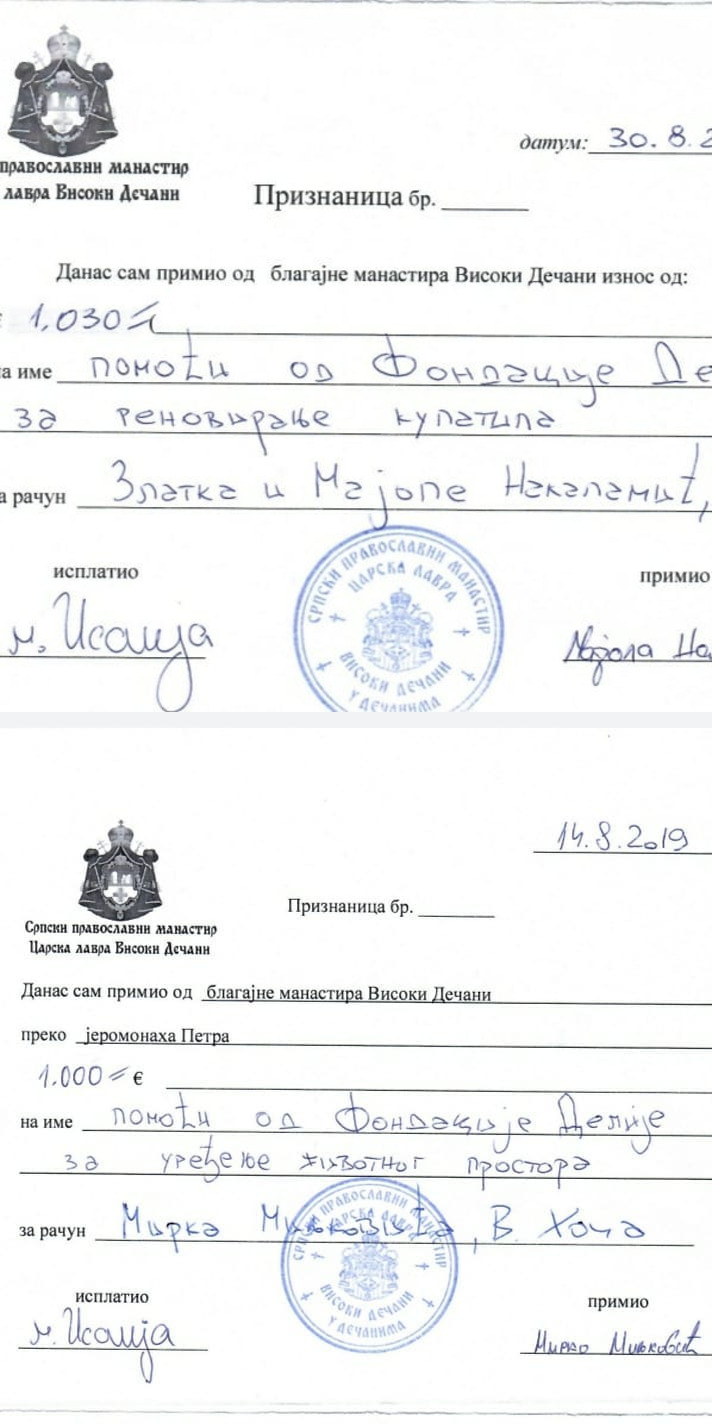 православни манастир
лавра Високи Дечани
датум: 30. 8. 2
Признаница бр.
Данас сам примио од благајне манастира Високи Дечани износ од:
€ 1.030
на име помоћи од Фондације Де
за реновирање купатила
за рачун Златка и Мајоле Накаламић,
СРПСКИ ПРАВОСЛАВНИ МАНАСТИР
ЦАРСКА ЛАВРА
ВИСОКИ ДЕЧАНИ
У ДЕЧАНИМА
исплатио
примио
м. Исаија
Мајола На
14.8.2019
Признаница бр.
Српски православни манастир
Царска лавра Високи Дечани
Данас сам примио од благајне манастира Високи Дечани
преко јеромонаха Петра
1.000 €
на име помоћи од Фондације Делије
за уређење животног простора
за рачун Мирка Миљковића, В. Хоча
СРПСКИ ПРАВОСЛАВНИ МАНАСТИР
ЦАРСКА ЛАВРА
ВИСОКИ ДЕЧАНИ
У ДЕЧАНИМА
исплатио
примио
м. Исаија
Мирко Миљковић